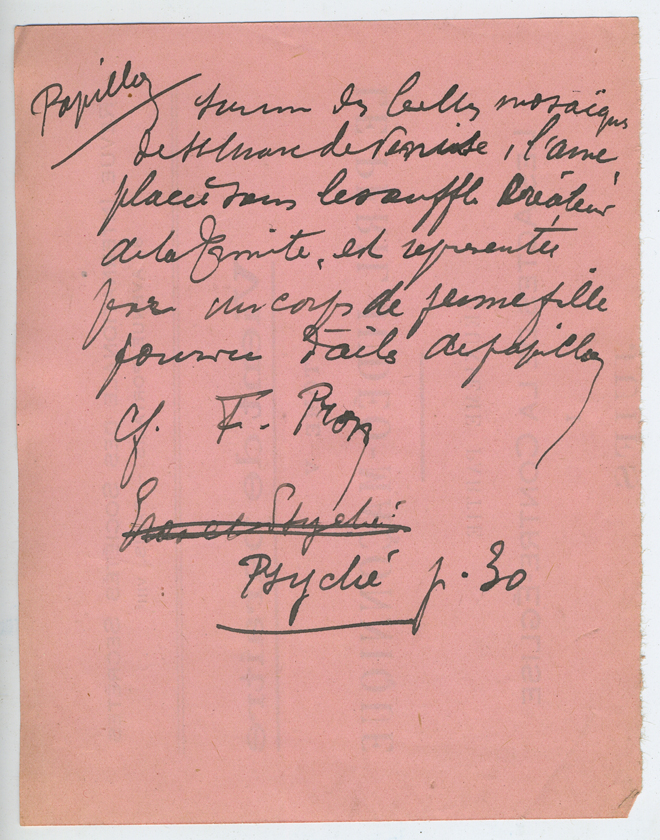 Papillon
sur un des belles mosaïques
de St Marc de Venise, l'ame
placée sous le souffle Créateur
de la Trinite, est representée
par un corps de jeune fille
pourvu d'ails de papillon
Cf. F. Pron
Eros et Psyché
Psyché p. 30